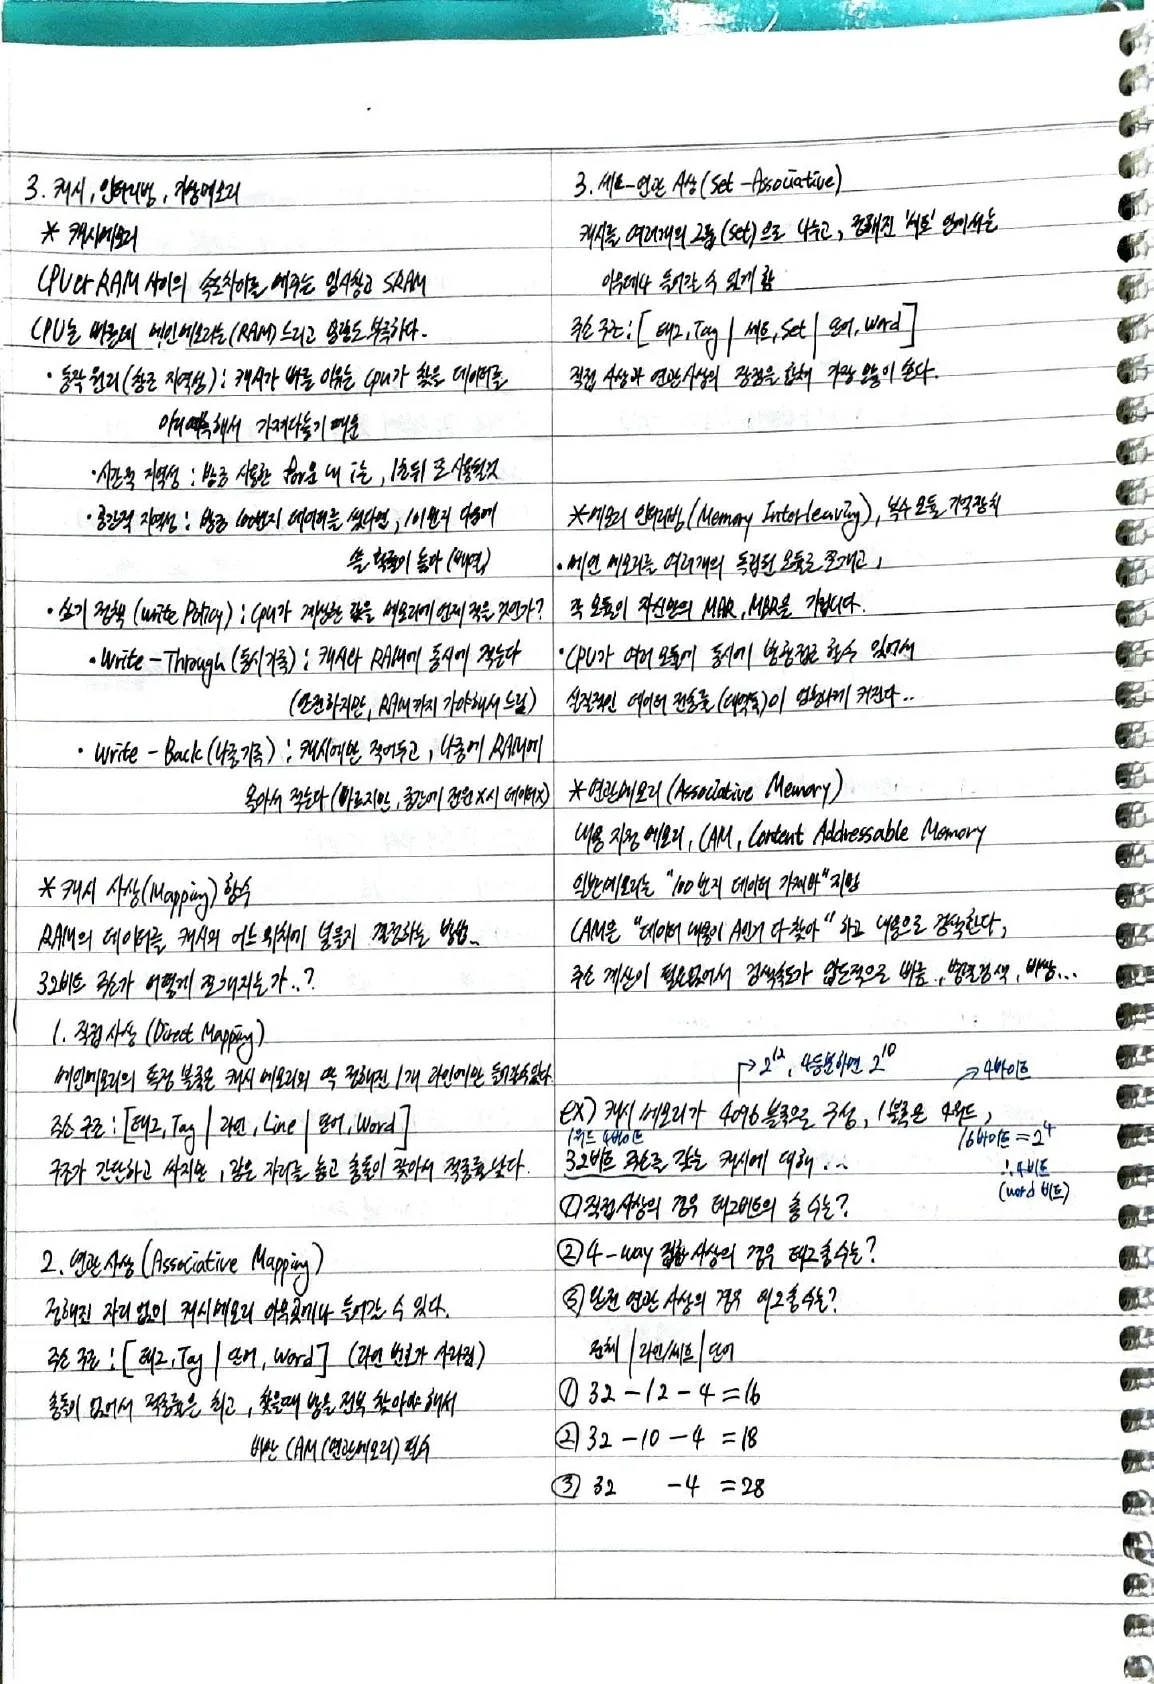 3. 캐시, 인터리빙, 가상메모리
* 캐시메모리
CPU와 RAM 사이의 속도차이를 메주는 임시창고 SRAM
CPU는 빠른데 메인메모리는(RAM) 느리고 용량도 부족하다.
· 동작 원리(참조 지역성) : 캐시가 빠른 이유는 CPU가 찾을 데이터를
미리 예측해서 가져다놓기 때문
· 시간적 지역성 : 방금 사용한 for문 내 i는, 1초뒤 또 사용될것
· 공간적 지역성 : 방금 100번지 데이터를 썼다면, 101번지 다음에
쓸 확률이 높다 (배열)
· 쓰기 정책 (write Policy) : CPU가 계산한 값을 메모리에 언제 적을 것인가?
· Write - Through (동시기록) : 캐시와 RAM에 동시에 적는다
(안전하지만, RAM까지 가야해서 느림)
· Write - Back (나중기록) : 캐시에만 적어두고, 나중에 RAM에
몰아서 적는다 (빠르지만, 중간에 전원X시 데이터X)
* 캐시 사상(Mapping) 함수
RAM의 데이터를 캐시의 어느 위치에 넣을지 결정하는 방법..
32비트 주소가 어떻게 쪼개지는가..?
1. 직접 사상 (Direct Mapping)
메인메모리의 특정 블록은 캐시 메모리의 딱 정해진 1개 라인에만 들어갈수있다.
주소 구조 : [태그, Tag | 라인, Line | 단어, Word]
구조가 간단하고 싸지만, 같은 자리를 놓고 충돌이 잦아서 적중률 낮다.
2. 연관 사상 (Associative Mapping)
정해진 자리 없이 캐시메모리 아무곳에나 들어갈 수 있다.
주소 구조 : [태그, Tag | 단어, Word] (라인 번호가 사라짐)
충돌이 없어서 적중률은 최고, 찾을때 방을 전부 찾아야 해서
비싼 CAM (연관메모리) 필수
3. 세트-연관 사상 (Set - Associative)
캐시를 여러개의 그룹 (Set) 으로 나누고, 정해진 '세트' 안에서는
아무데나 들어갈 수 있게 함
주소 구조 : [태그, Tag | 세트, Set | 단어, Word]
직접 사상과 연관사상의 장점을 합쳐 가장 많이 쓴다.
* 메모리 인터리빙 (Memory Interleaving), 복수 모듈 기억장치
· 메인 메모리를 여러개의 독립된 모듈로 쪼개고,
각 모듈이 자신만의 MAR, MBR을 가집니다.
· CPU가 여러 모듈에 동시에 병렬접근 할수 있어서
실질적인 데이터 전송률 (대역폭)이 엄청나게 커진다..
* 연관메모리 (Associative Memory)
내용 지정 메모리, CAM, Content Addressable Memory
일반메모리는 "100번지 데이터 가져와" 지만
CAM은 "데이터 내용이 A인거 다 찾아" 하고 내용으로 검색한다,
주소 계산이 필요없어서 검색속도가 압도적으로 빠름., 병렬검색, 비쌈...
→ 2^12, 4등분하면 2^10
→ 4바이트
ex) 캐시 메모리가 4096블록으로 구성, 1블록은 4워드,
1워드 4바이트
16바이트 = 2^4
32비트 주소를 갖는 캐시에 대해...
∴ 4비트
(word 비트)
① 직접사상의 경우 태그비트의 총 수는?
② 4-way 집합 사상의 경우 태그 총 수는?
③ 완전 연관 사상의 경우 태그 총 수는?
전체 | 라인/세트 | 단어
① 32 - 12 - 4 = 16
② 32 - 10 - 4 = 18
③ 32 - 4 = 28